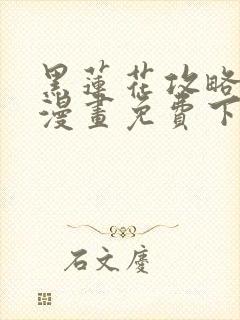 黑蓮花攻略
漫畫免費下
石文慶